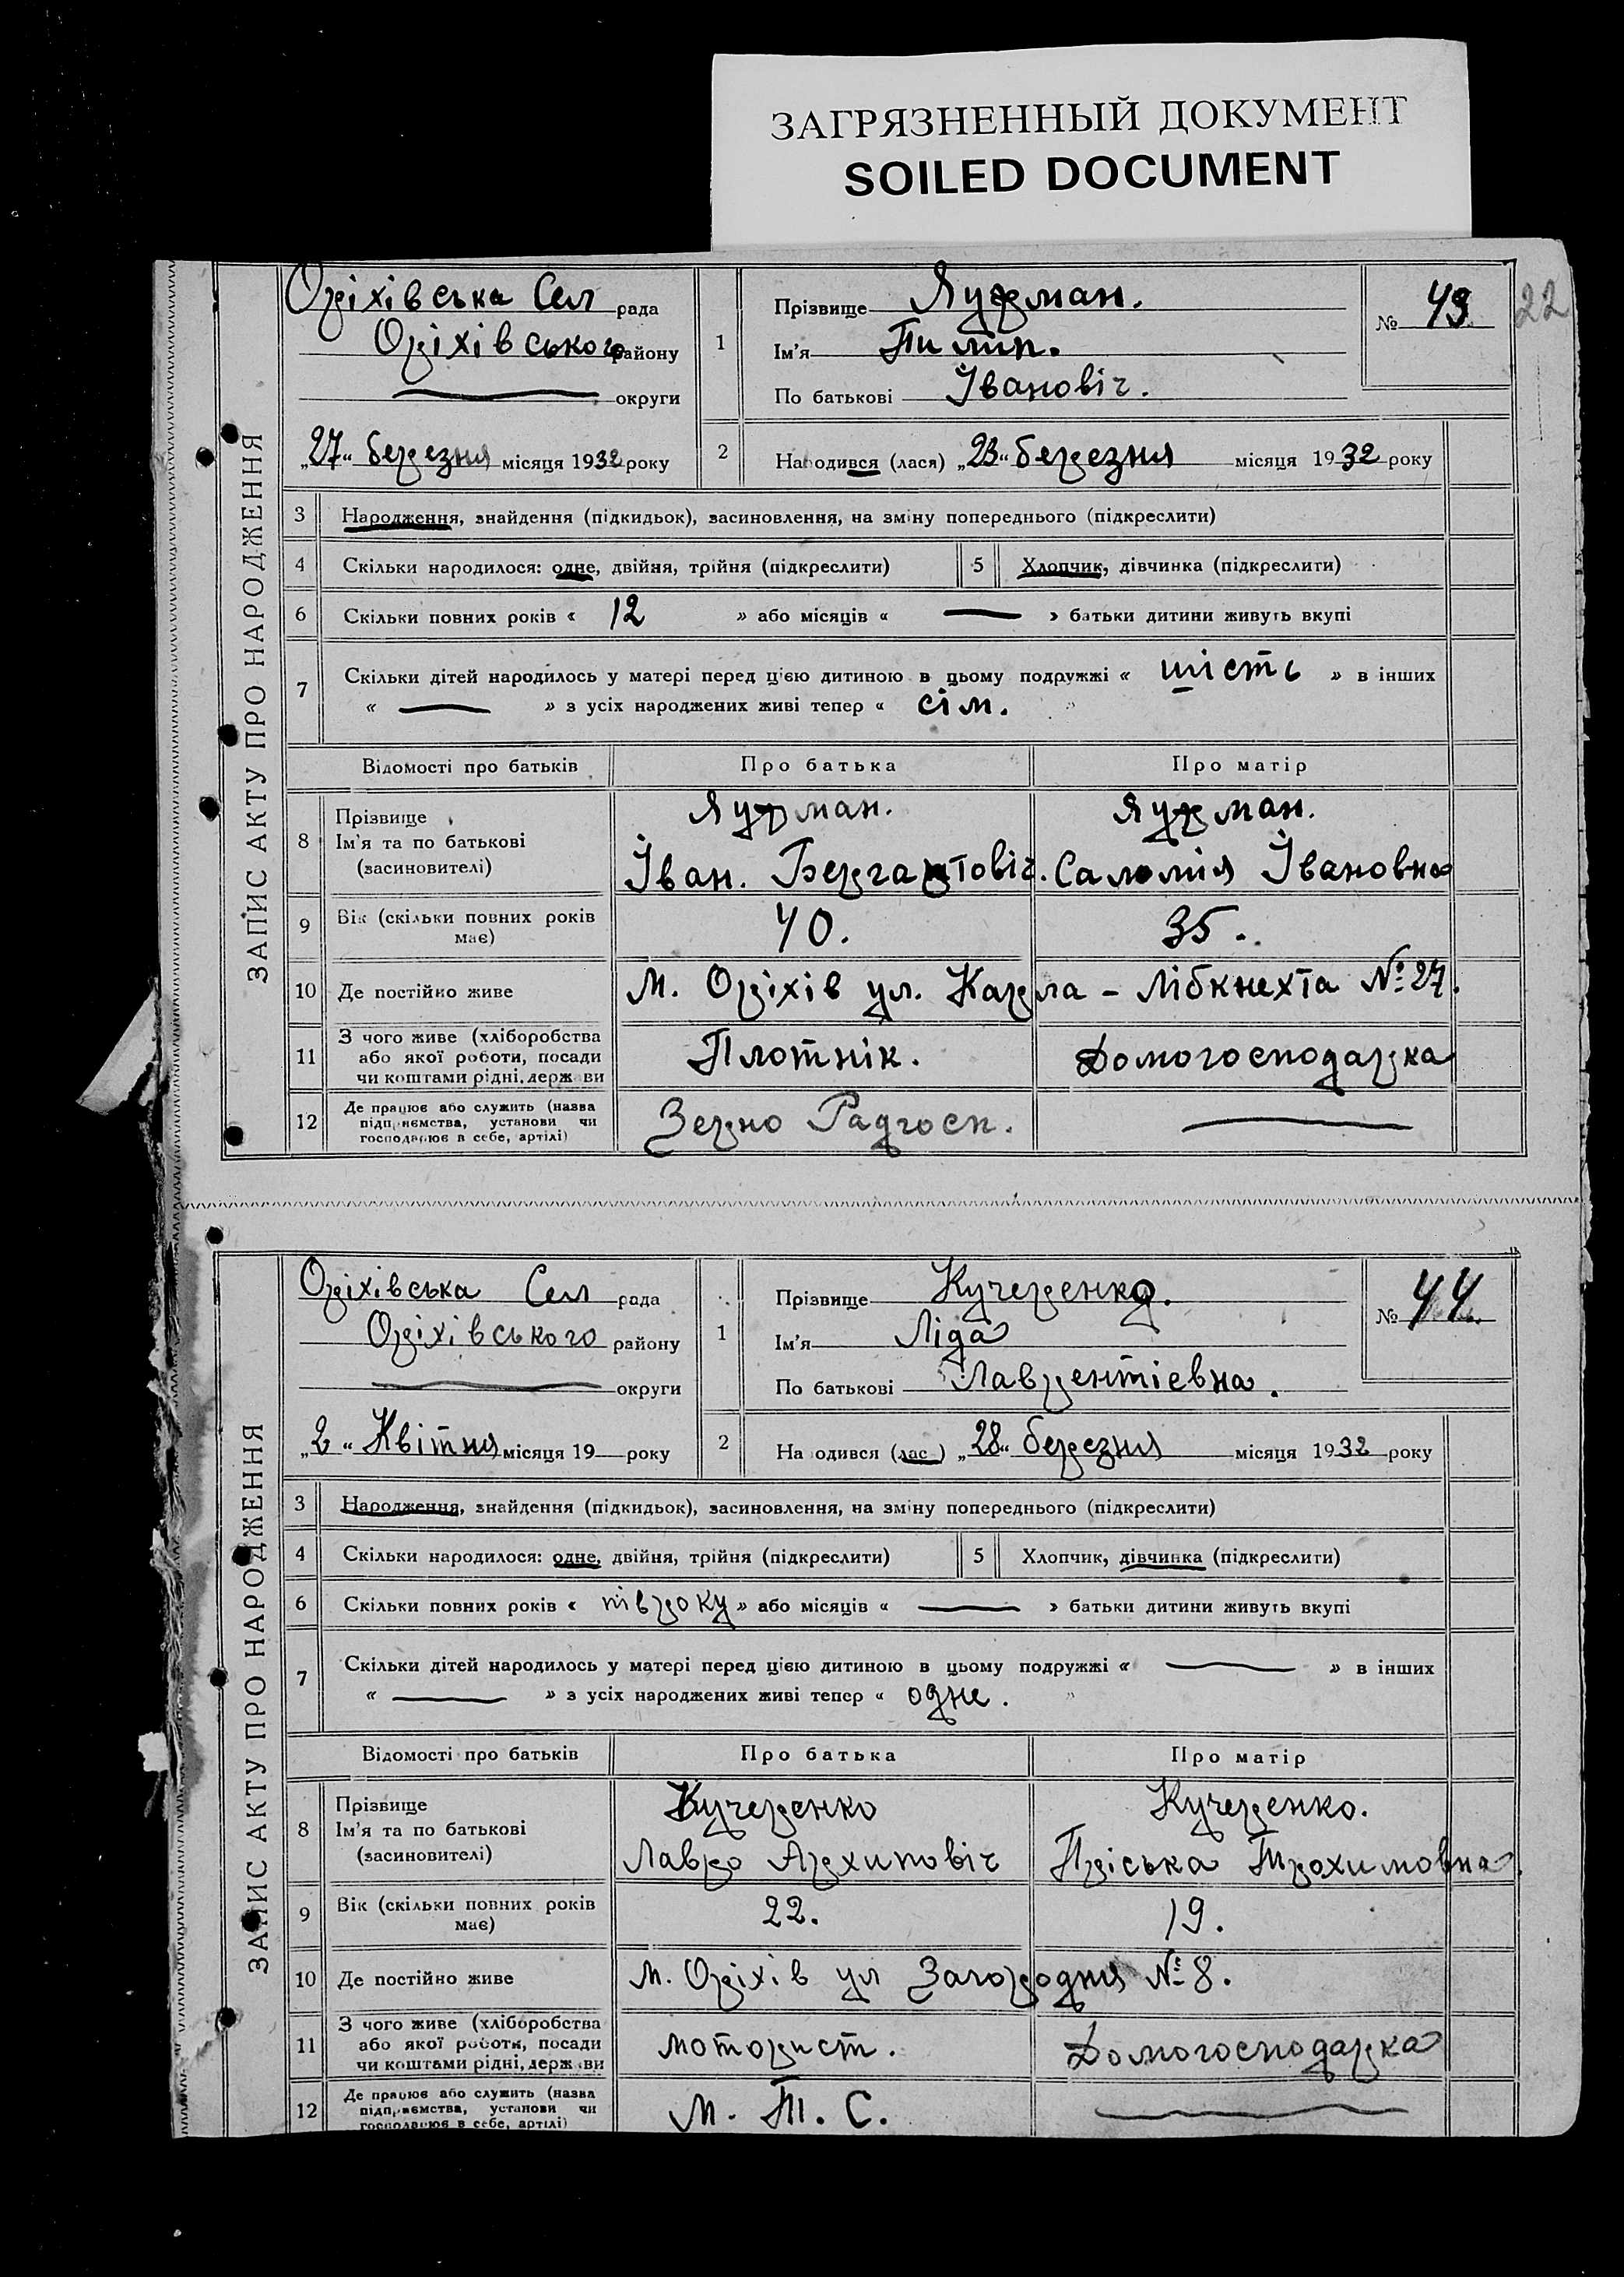 ЗАГРЯЗНЕННЫЙ ДОКУМЕНТ
SOILED DOCUMENT
22
ЗАПИС АКТУ ПРО НАРОДЖЕННЯ
Оріхівська Сел рада
Оріхівського району
— округи
„27“ березня місяця 1932 року
1 Прізвище Яурман.
Ім'я Пилип.
По батькові Івановіч.
№ 43
2 Народився (лася) „23“ березня місяця 1932 року
3 Народження, знайдення (підкидьок), засиновлення, на зміну попереднього (підкреслити)
4 Скільки народилося: одне, двійня, трійня (підкреслити) 5 Хлопчик, дівчинка (підкреслити)
6 Скільки повних років « 12 » або місяців « — » батьки дитини живуть вкупі
7 Скільки дітей народилось у матері перед цією дитиною в цьому подружжі « шість » в інших
« — » з усіх народжених живі тепер « сім. »
Відомості про батьків Про батька Про матір
8 Прізвище
Ім'я та по батькові
(засиновителі)
Яурман. Яурман.
Іван. Саломія Івановна
9 Вік (скільки повних років має) 40. 35.
10 Де постійно живе М. Оріхів ул. Карла - Лібкнехта № 27.
11 З чого живе (хліборобства
або якої роботи, посади
чи коштами рідні, держави
Плотнік. Домогосподарка
12 Де працює або служить (назва
підприємства, установи чи
господарює в себе, артілі)
Зерно Радгосп. —
ЗАПИС АКТУ ПРО НАРОДЖЕННЯ
Оріхівська Сел рада
Оріхівського району
— округи
„2“ Квітня місяця 19 — року
1 Прізвище Кучеренко.
Ім'я Ліда
По батькові Лаврентіевна.
№ 44
2 Народився (лас ) „28“ березня місяця 1932 року
3 Народження, знайдення (підкидьок), засиновлення, на зміну попереднього (підкреслити)
4 Скільки народилося: одне, двійня, трійня (підкреслити) 5 Хлопчик, дівчинка (підкреслити)
6 Скільки повних років « півроку » або місяців « — » батьки дитини живуть вкупі
7 Скільки дітей народилось у матері перед цією дитиною в цьому подружжі « — » в інших
« — » з усіх народжених живі тепер « одне. »
Відомості про батьків Про батька Про матір
8 Прізвище
Ім'я та по батькові
(засиновителі)
Кучеренко Кучеренко.
Лавро Архиповіч Пріська Трохимовна.
9 Вік (скільки повних років має) 22. 19.
10 Де постійно живе М. Оріхів ул Загородня № 8.
11 З чого живе (хліборобства
або якої роботи, посади
чи коштами рідні, держави
моторист. Домогосподарка
12 Де працює або служить (назва
підприємства, установи чи
господарює в себе, артілі)
М. Т. С. —